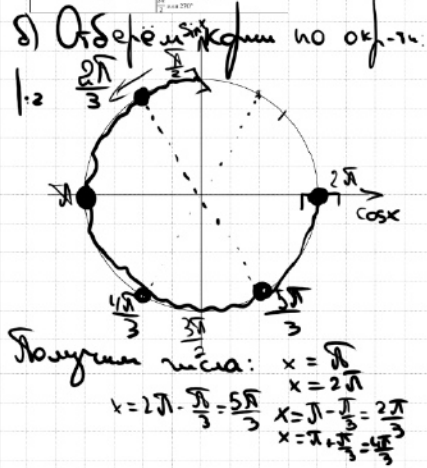 б) Отберём корни по окр-ти:
sinx
π/2
2π/3
1:2
π
2π
cosx
4π/3
3π/2
5π/3
Получим числа: x = π
x = 2π
x = 2π - π/3 = 5π/3
x = π - π/3 = 2π/3
x = π + π/3 = 4π/3